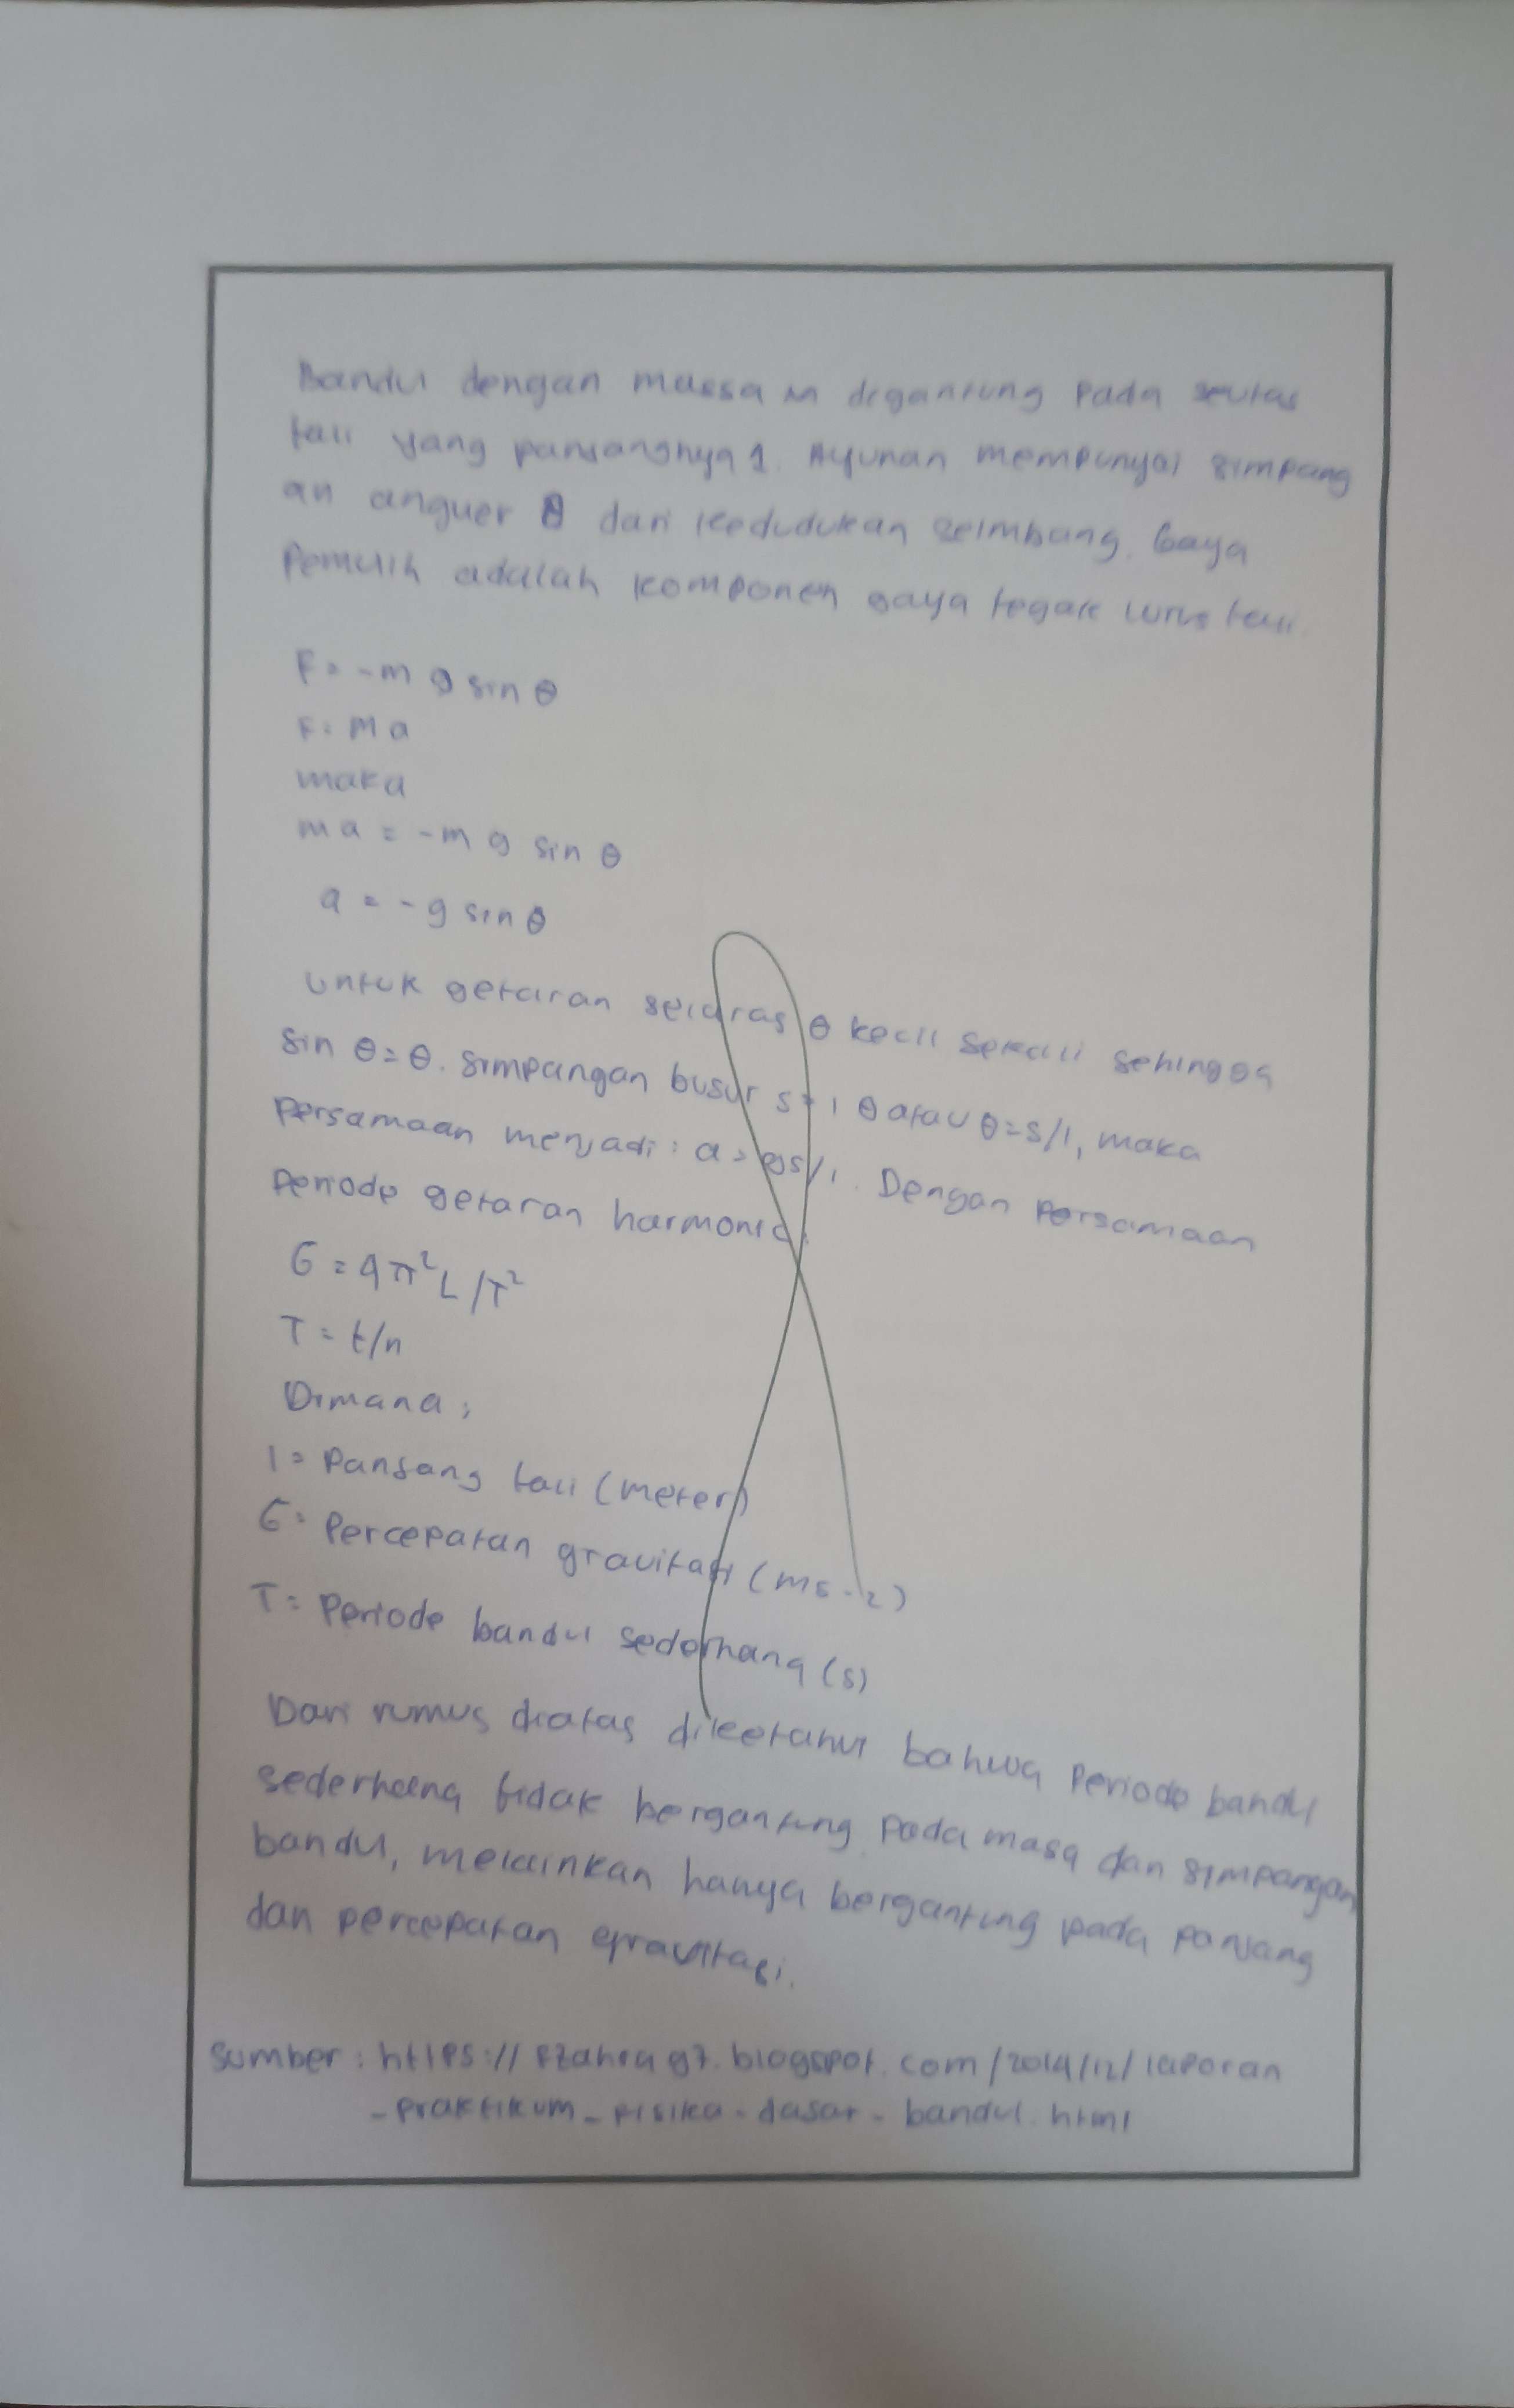 Bandul dengan massa m digantung pada seutas
tali yang panjangnya 1. Ayunan mempunyai simpang
an anguer θ dari kedudukan seimbang. Gaya
Pemulih adalah komponen gaya tegak lurus tali.
F = -m g sin θ
F = m a
maka
m a = -m g sin θ
a = -g sin θ
Untuk getaran selaras θ kecil sekali sehingga
sin θ = θ. Simpangan busur s = 1 θ atau θ = s/1, maka
Persamaan menjadi : a = gs/1. Dengan Persamaan
Periode getaran harmonic.
G = 4π²L/T²
T = t/n
Dimana :
1 = Panjang tali (meter)
G = Percepatan gravitasi (ms-2)
T = Periode bandul sederhana (s)
Dari rumus diatas diketahui bahwa Periode bandul
sederhana tidak bergantung pada masa dan simpangan
bandul, melainkan hanya bergantung pada panjang
dan percepatan gravitasi.
Sumber : https://fzahra97.blogspot.com/2014/12/laporan
-praktikum-fisika-dasar-bandul.html